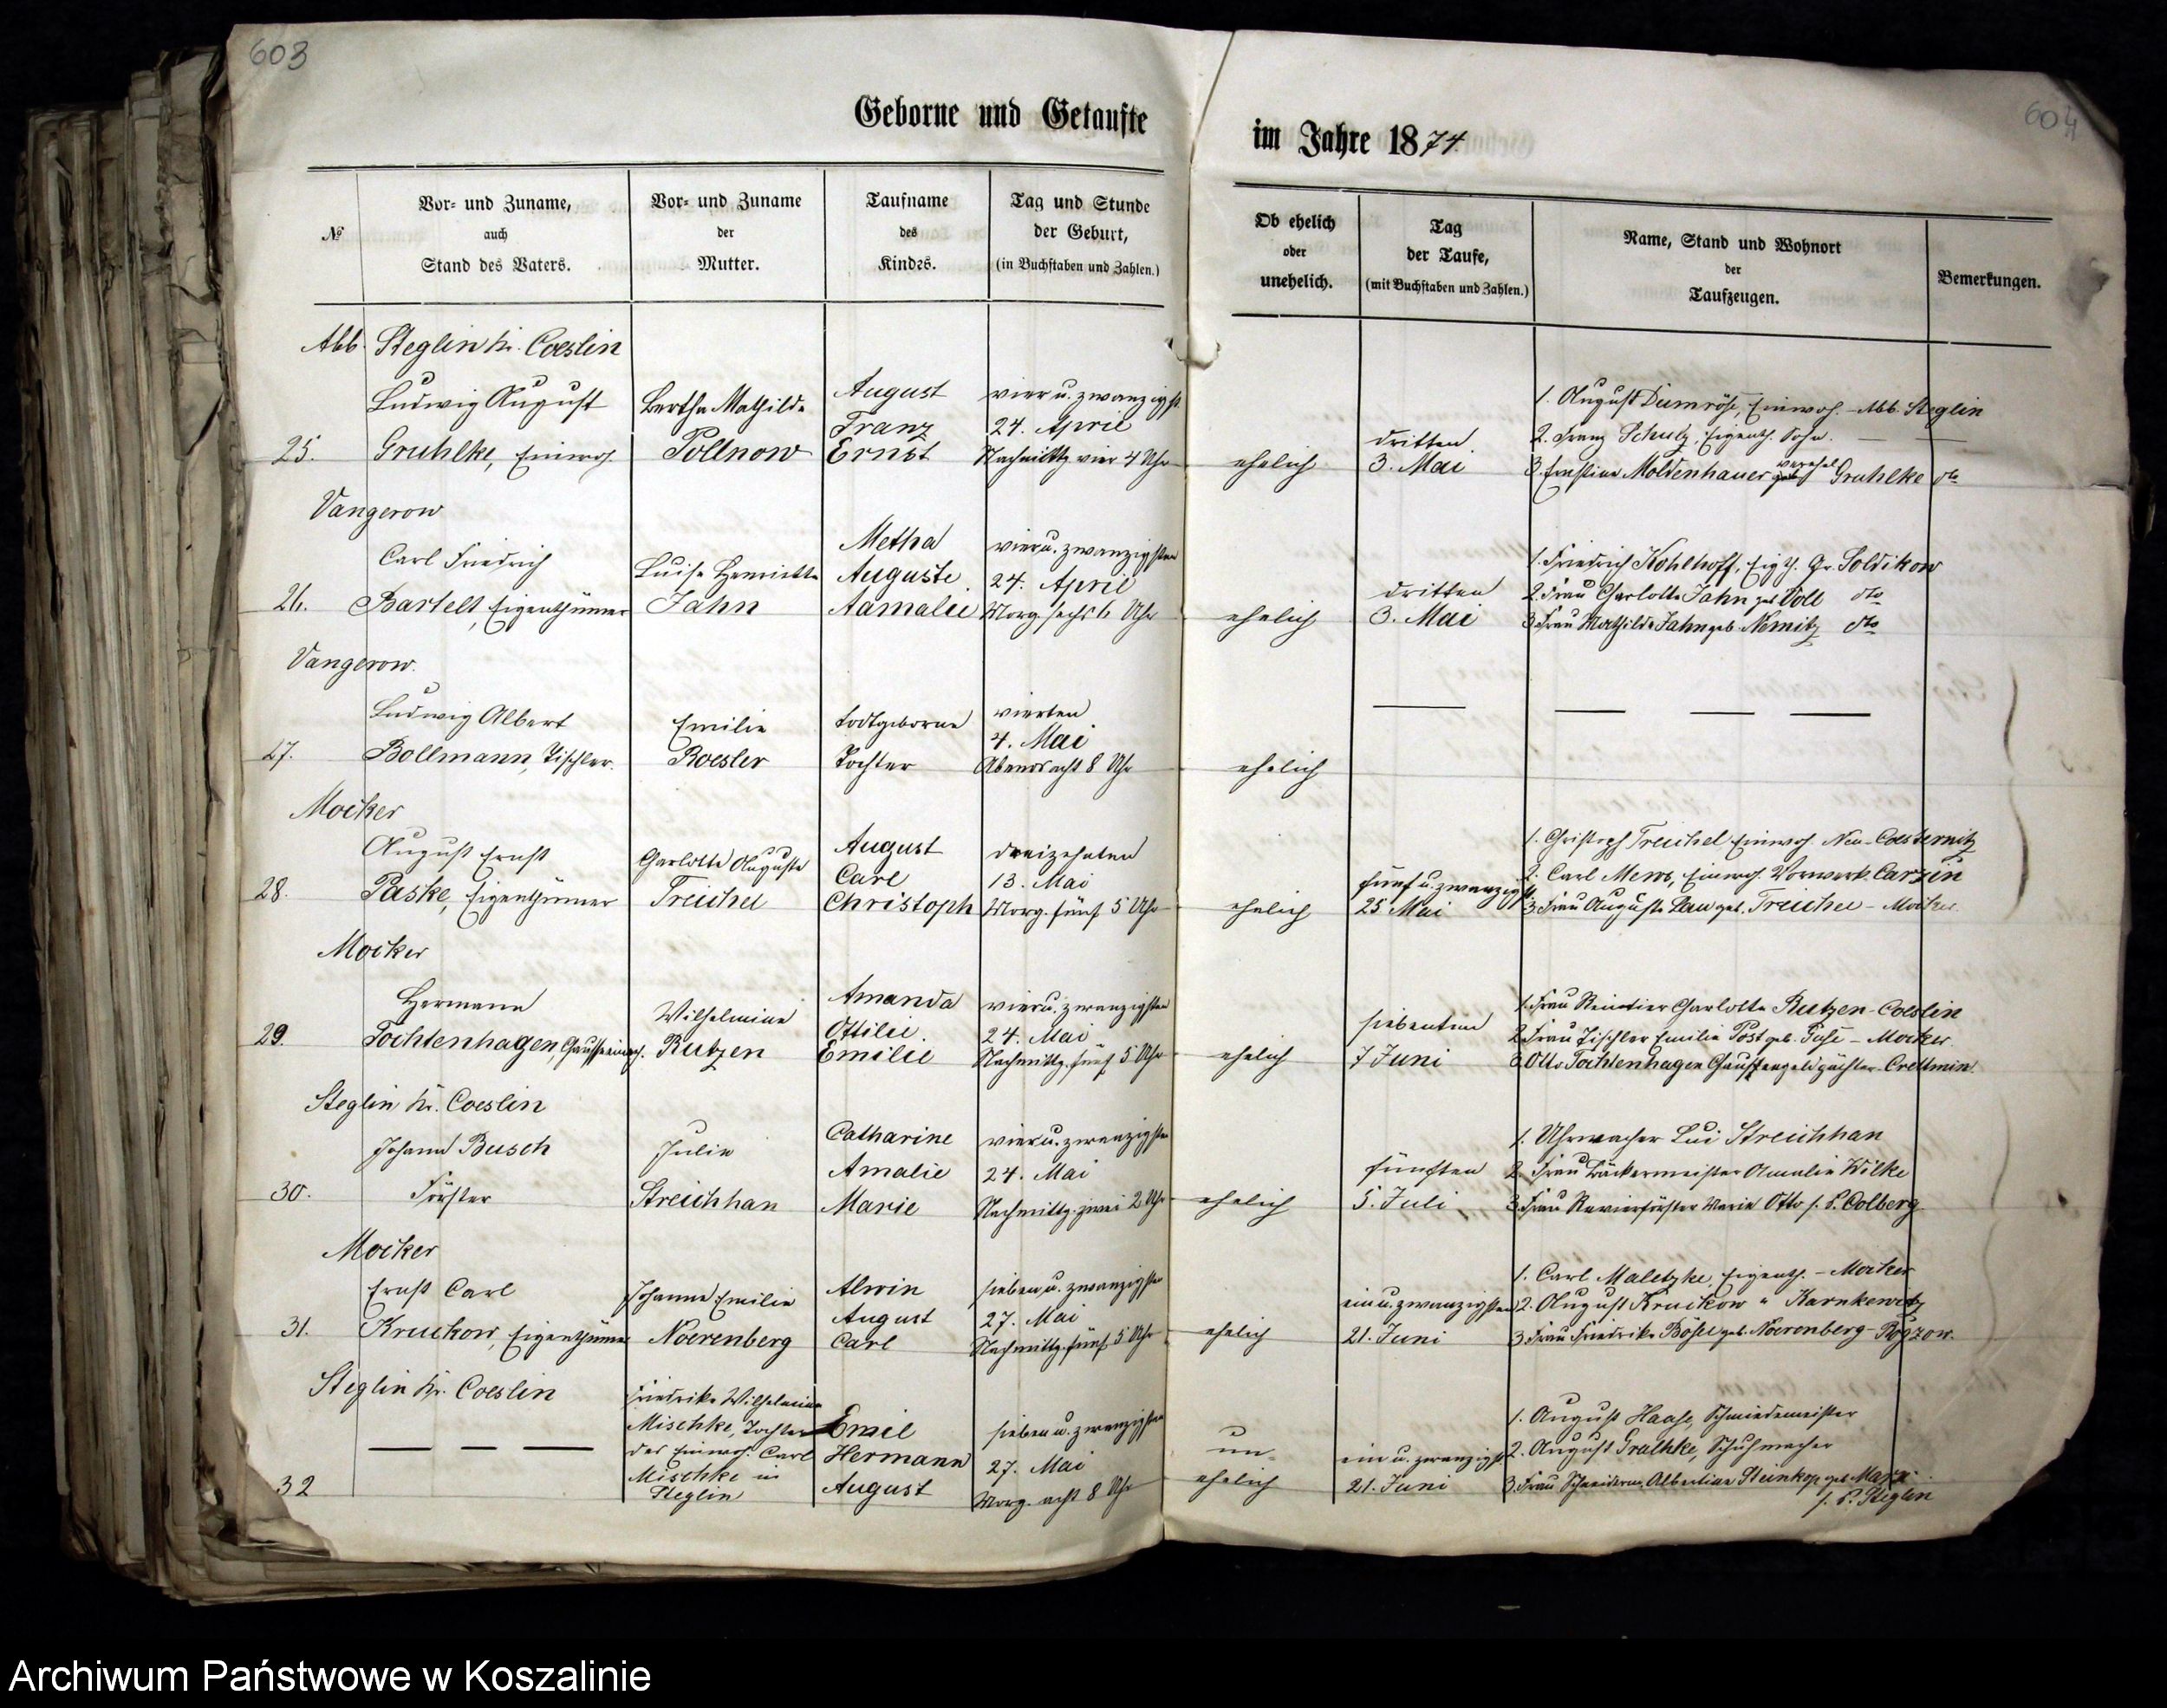 603
604
Geborne und Getaufte
im Jahre 1874.
№
Vor- und Zuname,
auch
Stand des Vaters.
Vor- und Zuname
der
Mutter.
Taufname
des
Kindes.
Tag und Stunde
der Geburt,
(in Buchstaben und Zahlen.)
Ob ehelich
oder
unehelich.
Tag
der Taufe,
(mit Buchstaben und Zahlen.)
Name, Stand und Wohnort
der
Taufzeugen.
Bemerkungen.
Abb. Steglin Kr. Coeslin
25.
Ludwig August
Gruhlke, Einwoh.
Bertha Mathilde
Pollnow
August
Franz
Ernst
vier u. zwanzigst
24. April
Nachmittg vier 4 Uhr
ehelich
dritten
3. Mai
1. August Dumröse, Einwoh. - Abb. Steglin
2. Franz Schulz, Eigenth. Sohn. — —
3. Ernstine Moldenhauer verehel Gruhlke dto
Vangerow
26.
Carl Friedrich
Bartelt, Eigenthümer
Luise Henriette
Jahn
Metha
Auguste
Aamalie
vier u. zwanzigsten
24. April
Morg. sechs 6 Uhr
ehelich
dritten
3. Mai
1. Friedrich Kohlhoff, Eigth. Gr. Soldikow
2. Frau Charlotte Jahn geb Voll dto
3. Frau Mathilde Jahn geb. Nemitz dto
Vangerow.
27.
Ludwig Albert
Bollmann, Tischler.
Emilie
Roesler
todtgeborne
Tochter
vierten
4. Mai
Abends acht 8 Uhr
ehelich
Mocker
28.
August Ernst
Paske, Eigenthümer
Charlotte Auguste
Treichel
August
Carl
Christoph
dreizehnten
13. Mai
Morg. fünf 5 Uhr
ehelich
fünf u. zwanzigst
25 Mai
1. Christoph Treichel Einwoh Neu-Coesternitz
2. Carl Mews, Einwoh. Vorwerk Carzin
3. Frau Auguste Lau geb. Treichel - Mocker.
Mocker
29.
Hermann
Tochtenhagen, Chausseeeinnehm.
Wilhelmine
Rutzen
Amanda
Ottilie
Emilie
vier u. zwanzigsten
24. Mai
Nachmittg. fünf 5 Uhr
ehelich
siebenten
7 Juni
1. Frau Rentier Charlotte Rutzen - Coeslin
2. Frau Tischler Emilie Post geb. - Mocker.
3. Otto Tochtenhagen Chausseegeldpächter Crettmin.
Steglin Kr. Coeslin
30.
Johann Busch
Förster
Julie
Streichhan
Catharine
Amalie
Marie
vier u. zwanzigsten
24. Mai
Nachmittg. zwei 2 Uhr
ehelich
fünften
5. Juli
1. Uhrmacher Lui Streichhan
2. Frau Bäckermeister Amalie Wilke
3. Frau Revierförster Marie Otto s. P. Colberg
Mocker
31.
Ernst Carl
Kruckow, Eigenthümer
Johanne Emilie
Noerenberg
Alwin
August
Carl
sieben u. zwanzigsten
27. Mai
Nachmittg. fünf 5 Uhr
ehelich
ein u. zwanzigsten
21. Juni
1. Carl Maletzke, Eigenth. - Mocker
2. August Kruckow " Karnkewitz
3. Frau Friedrike Bösel geb. Noerenberg - Rogzow.
Steglin Kr. Coeslin
32
Friedrike Wilhelmine
Mischke, Tochter
des Einwoh. Carl
Mischke in
Steglin
Emil
Hermann
August
sieben u. zwanzigsten
27. Mai
Morg. acht 8 Uhr
un-
ehelich
ein u. zwanzigst
21. Juni
1. August Haase, Schmiedemeister
2. August Grathke, Schuhmacher
3. Frau Schneiderm. Albertine Steinkop geb. Marx
s. P. Steglin
Archiwum Państwowe w Koszalinie